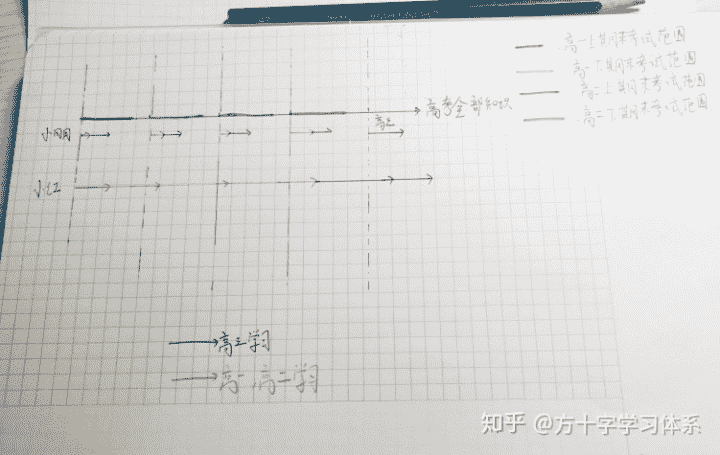 高一上期末考试范围
高一下期末考试范围
高二上期末考试范围
高二下期末考试范围
高考全部知识
小明
高三
小红
高三学习
高一,高二学习
知乎 @方十字学习体系